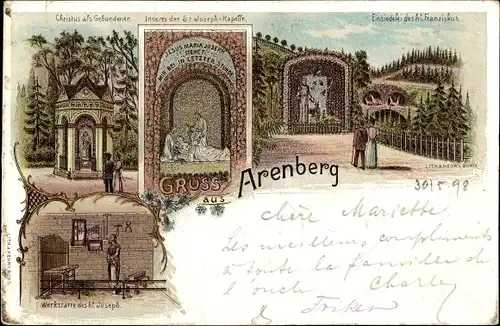 Christus als Gebundener.
Inneres der St Joseph-Kapelle.
Einsiedelei des hl. Franziskus.
JESUS MARIA JOSEPH
STEHET
MIR BEI IN LETZTER STUNDE
GRUSS
aus
Arenberg
30/5 98
Chère Mariette
Les meilleurs compliments
à toute la famille de
l'oncle Charles
Werkstätte des hl. Joseph.